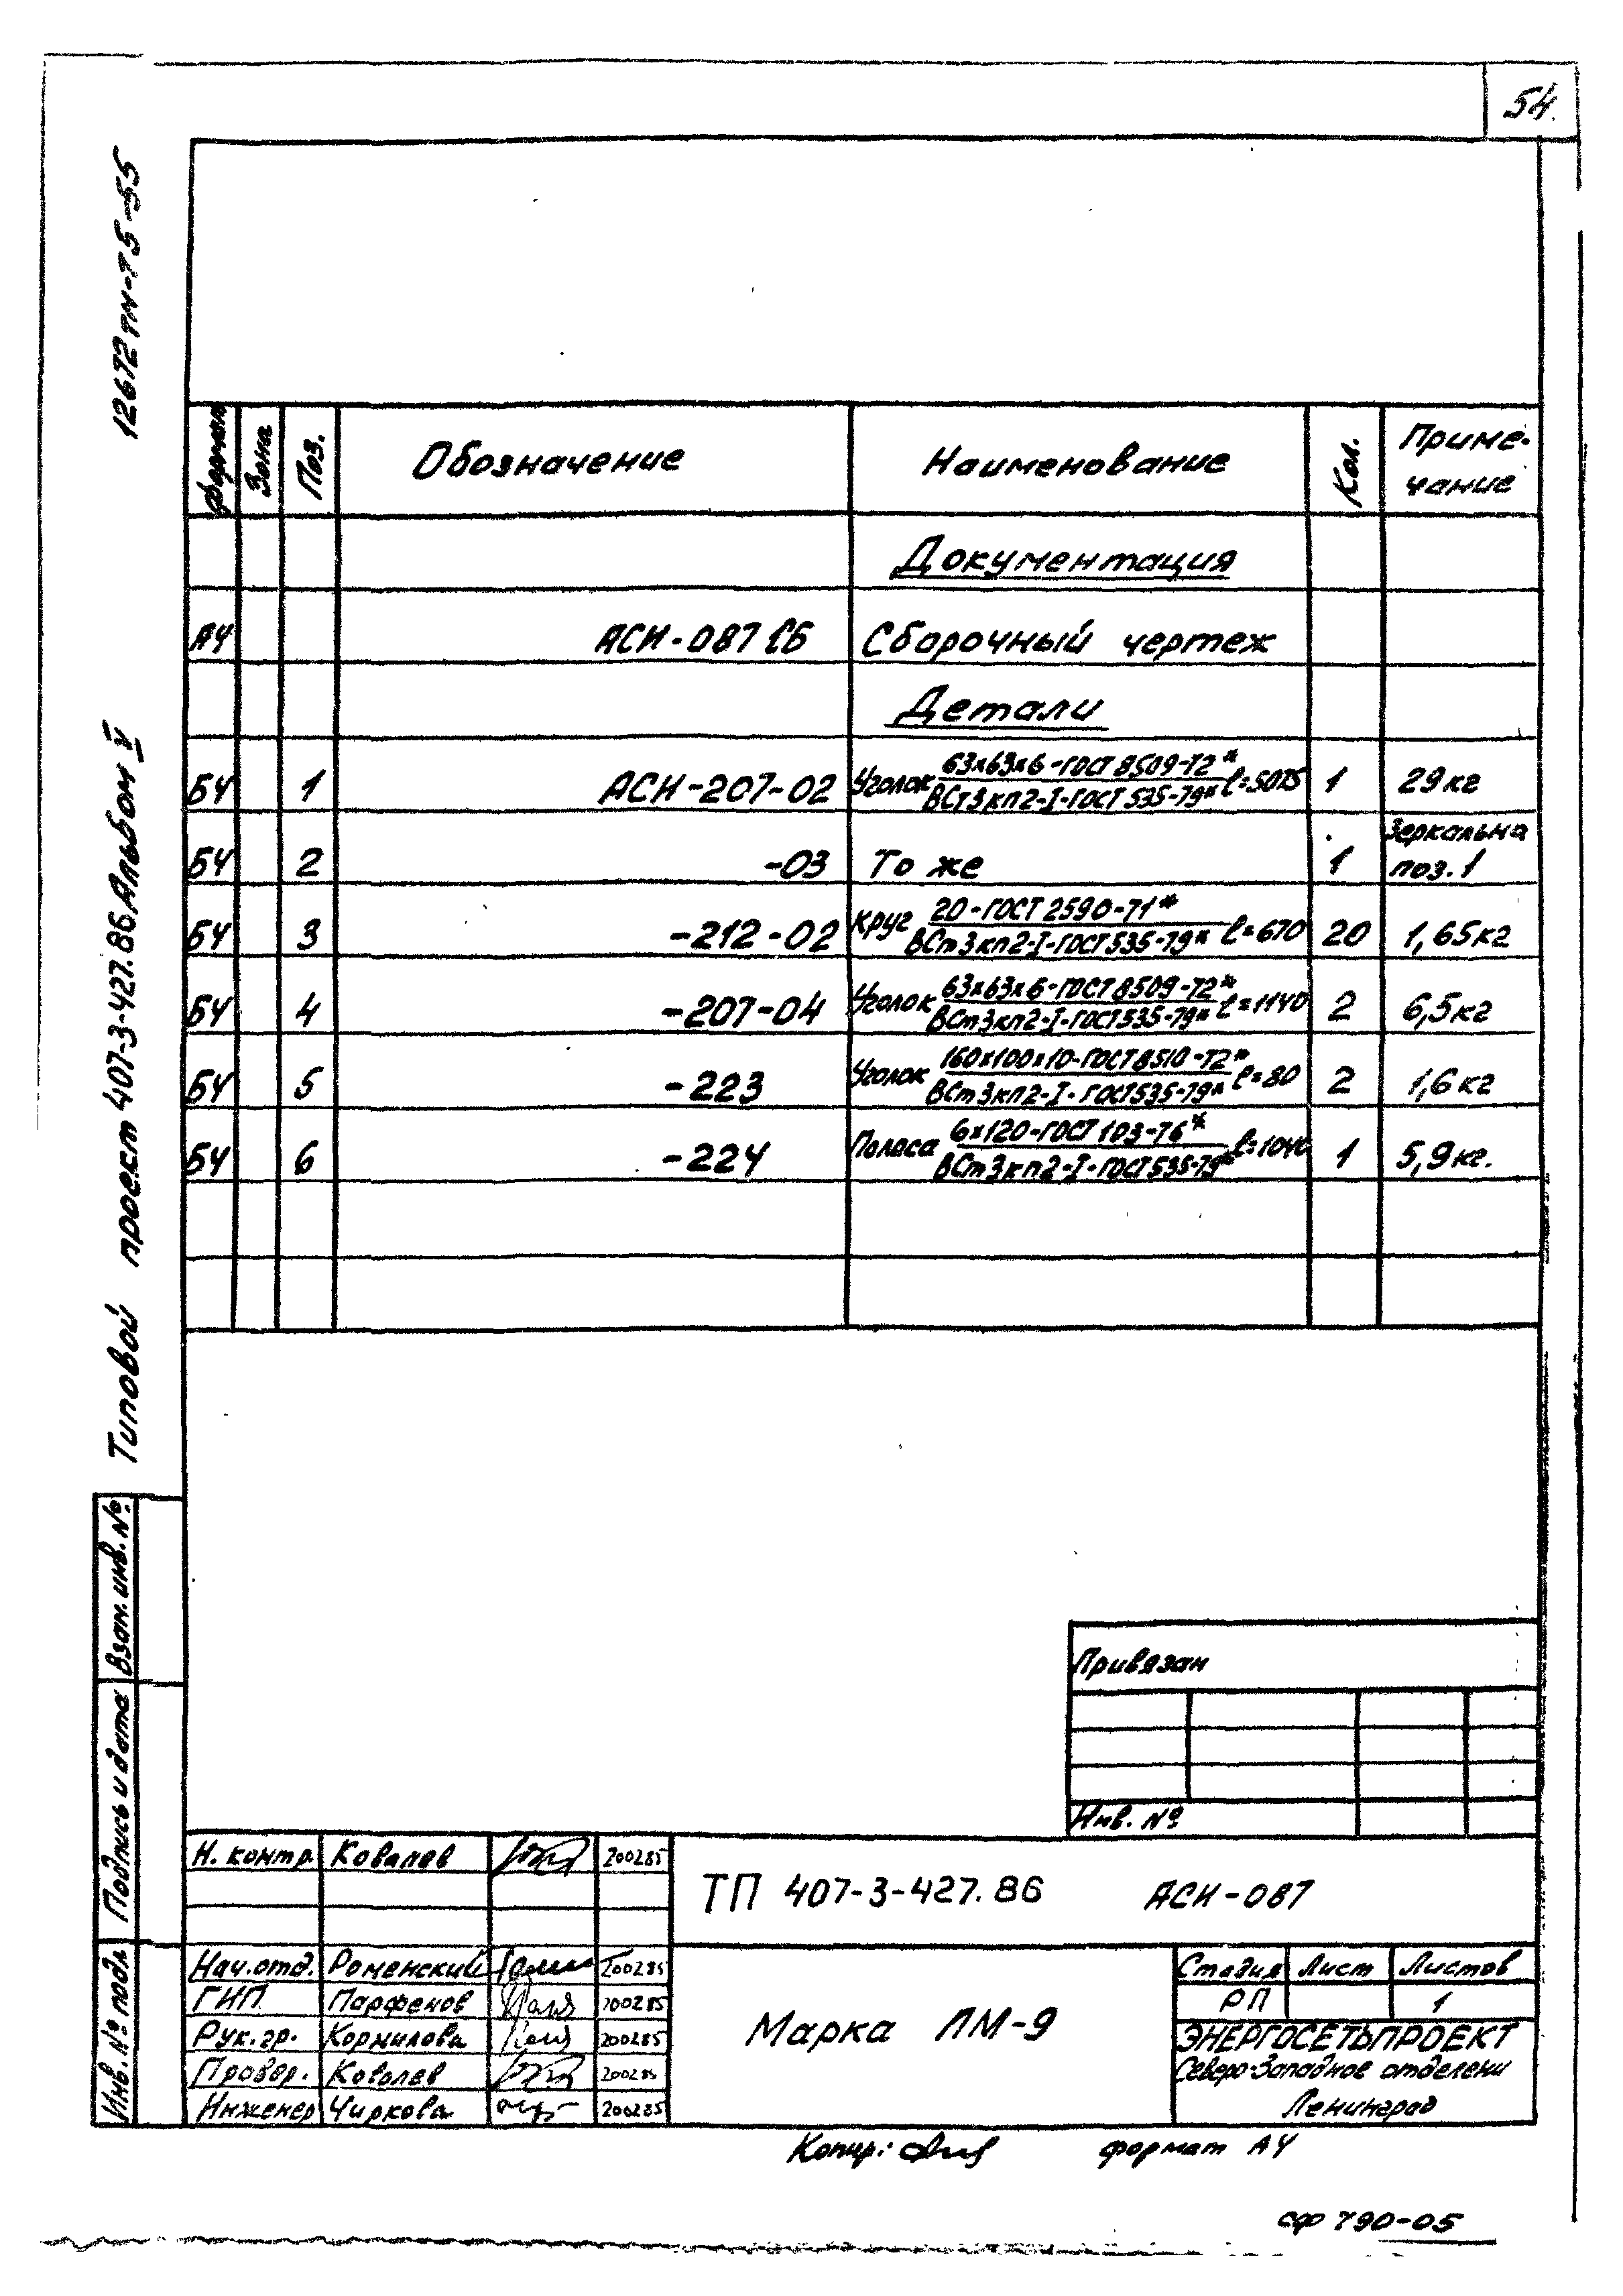 54
12672тм-т5-55
Типовой проект 407-3-427.86. Альбом V
Формат Зона Поз. Обозначение Наименование Кол. Примечание
Документация
А4 АСИ-087 СБ Сборочный чертеж
Детали
БЧ 1 АСИ-207-02 Уголок 63х63х6-ГОСТ 8509-72* / ВСт3кп2-I-ГОСТ 535-79* ℓ=5025 1 29кг
БЧ 2 -03 То же 1 Зеркальна поз.1
БЧ 3 -212-02 Круг 20-ГОСТ 2590-71* / ВСт3кп2-I-ГОСТ 535-79* ℓ=670 20 1,65кг
БЧ 4 -207-04 Уголок 63х63х6-ГОСТ 8509-72* / ВСт3кп2-I-ГОСТ 535-79* ℓ=1140 2 6,5кг
БЧ 5 -223 Уголок 160х100х10-ГОСТ 8510-72* / ВСт3кп2-I-ГОСТ 535-79* ℓ=80 2 1,6кг
БЧ 6 -224 Полоса 6х120-ГОСТ 103-76* / ВСт3кп2-I-ГОСТ 535-79* ℓ=1040 1 5,9кг.
Взам. инв. №
Подпись и дата
Инв. № подл
Привязан
Инв. №
Н. контр. Ковалев 200285
ТП 407-3-427.86 АСИ-087
Нач. отд. Роменский 200285
ГИП Парфенов 200285
Рук. гр. Кормилова 200285
Провер. Ковалев 200285
Инженер Чиркова 200285
Марка ЛМ-9
Стадия Лист Листов
РП 1
ЭНЕРГОСЕТЬПРОЕКТ
Северо-Западное отделени
Ленинград
Копир: формат А4
сф 790-05